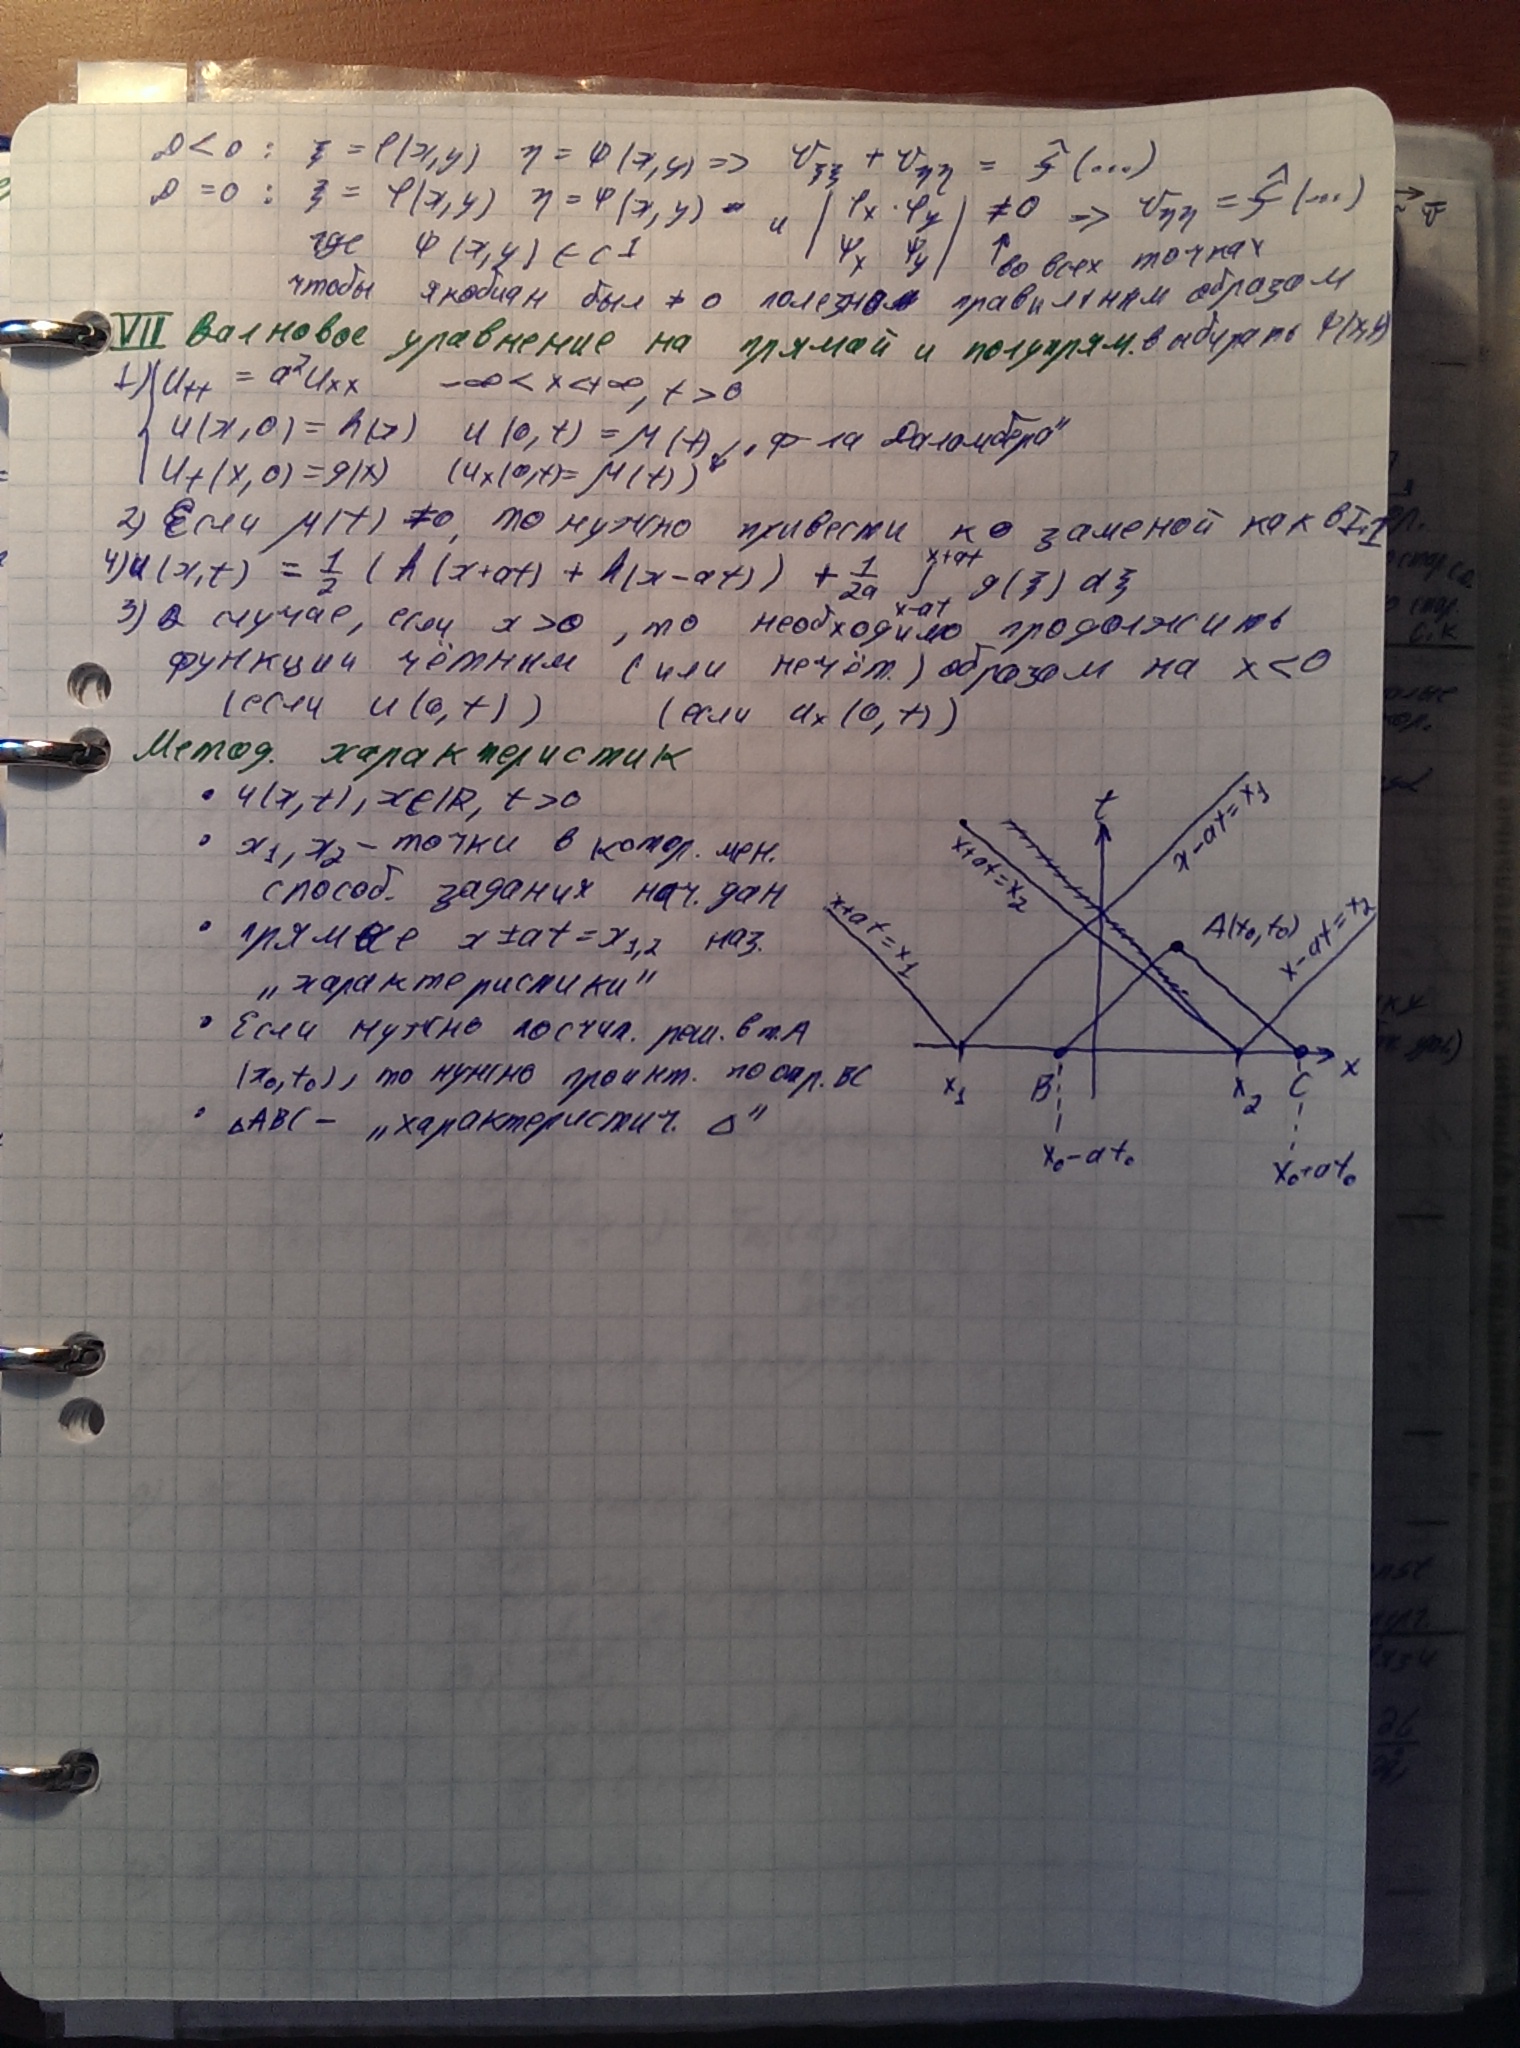 D<0 : ξ = φ(x,y) η = ψ(x,y) => v_ξξ + v_ηη = f̂(...)
D=0 : ξ = φ(x,y) η = ψ(x,y) - и | φx · φy | ≠0 => v_ηη = f̂(...)
где ψ(x,y) ∈ C1 | ψx ψy | ↑ во всех точках
чтобы якобиан был ≠0 полезно правильным образом
выбирать ψ(x,y)
VII Валновое уравнение на прямай и полупрям.
1) { Utt = a²Uxx -∞<x<+∞, t>0
U(x,0) = h(x) U(0,t) = μ(t) „ф-ла Даламбера"
Ut(x,0) = g(x) (Ux(0,t) = μ(t))
2) Если μ(t) ≠0, то нужно привести к 0 заменой как в I,II
4) U(x,t) = 1/2 (h(x+at) + h(x-at)) + 1/2a ∫_{x-at}^{x+at} g(ξ) dξ
3) в случае, если x>0, то необходимо продолжить
функции чётным (или нечёт.) образом на x<0
(если U(0,t)) (если Ux(0,t))
Метод. характеристик
• U(x,t), x∈ℝ, t>0
• x1, x2 – точки в котор. мен.
способ. задания нач. дан
• прямые x±at=x1,2 наз.
„характеристики"
• Если нужно посчит. реш. в т.A
(x0,t0), то нужно проинт. по отр. BC
• △ABC – „характеристич. △"
t
x-at=x1
x+at=x2
x+at=x1
A(x0,t0)
x-at=x2
x
x1
B
x2
C
x0-at0
x0+at0